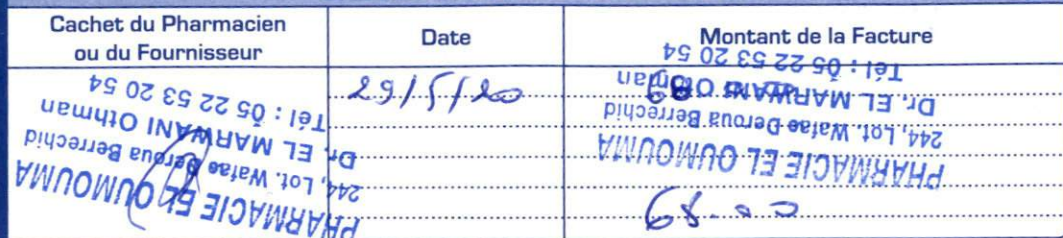 Cachet du Pharmacien
ou du Fournisseur
Date
Montant de la Facture
PHARMACIE EL OUMOUMA
244, Lot. Wafae Deroua Berrechid
Dr. EL MARWANI Othman
Tél : 05 22 53 20 54
29/5/20
PHARMACIE EL OUMOUMA
244, Lot. Wafae Deroua Berrechid
Dr. EL MARWANI Othman
Tél : 05 22 53 20 54
68.00